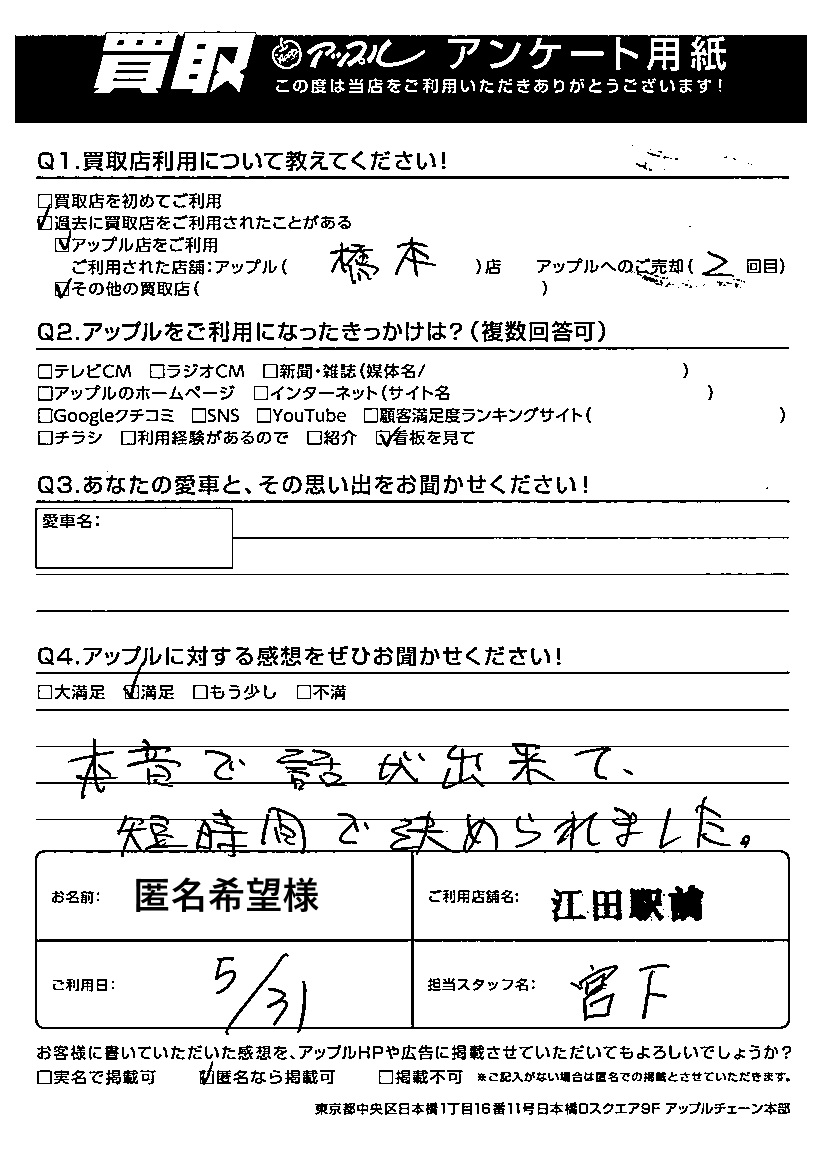 買取 アップル アンケート用紙
この度は当店をご利用いただきありがとうございます!
Q1.買取店利用について教えてください!
□買取店を初めてご利用
☑過去に買取店をご利用されたことがある
☑アップル店をご利用
ご利用された店舗:アップル( 橋本 )店 アップルへのご売却( 2 回目)
☑その他の買取店( )
Q2.アップルをご利用になったきっかけは?(複数回答可)
□テレビCM □ラジオCM □新聞・雑誌(媒体名/ )
□アップルのホームページ □インターネット(サイト名 )
□Googleクチコミ □SNS □YouTube □顧客満足度ランキングサイト( )
□チラシ □利用経験があるので □紹介 ☑看板を見て
Q3.あなたの愛車と、その思い出をお聞かせください!
愛車名:
Q4.アップルに対する感想をぜひお聞かせください!
□大満足 ☑満足 □もう少し □不満
本音で話が出来て、
短時間で決められました。
お名前: 匿名希望様 ご利用店舗名: 江田駅前
ご利用日: 5/31 担当スタッフ名: 宮下
お客様に書いていただいた感想を、アップルHPや広告に掲載させていただいてもよろしいでしょうか?
□実名で掲載可 ☑匿名なら掲載可 □掲載不可 ※ご記入がない場合は匿名での掲載とさせていただきます。
東京都中央区日本橋1丁目16番11号日本橋Dスクエア9F アップルチェーン本部